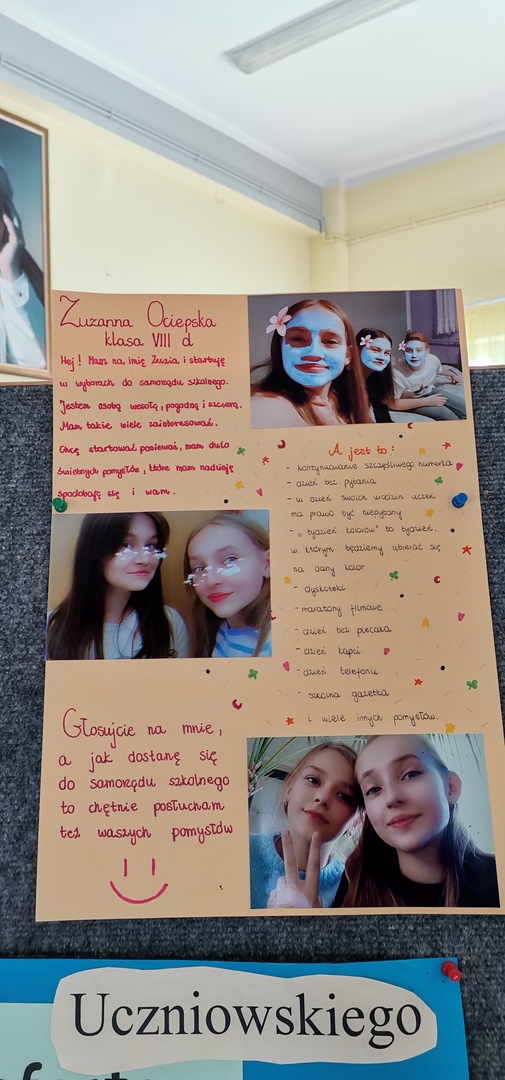 Zuzanna Ociepska
klasa VIII d
Hej! Mam na imię Zuzia i startuję
w wyborach do samorządu szkolnego.
Jestem osobą wesołą, pogodną i szczerą.
Mam także wiele zainteresowań.
Chcę startować ponieważ, mam dużo
świetnych pomysłów, które mam nadzieję
spodobają się i wam.
A jest to:
- kontynuowanie szczęśliwego numerka
- dzień bez pytania
- w dzień swoich urodzin uczeń
ma prawo być niepytany
- ,, tydzień kolorów" to tydzień,
w którym będziemy ubierać się
na dany kolor
- dyskoteki
- maratony filmowe
- dzień bez plecaka
- dzień kapci
- dzień telefonu
- szkolna gazetka
i wiele innych pomysłów.
Głosujcie na mnie,
a jak dostanę się
do samorządu szkolnego
to chętnie posłucham
też waszych pomysłów
Uczniowskiego